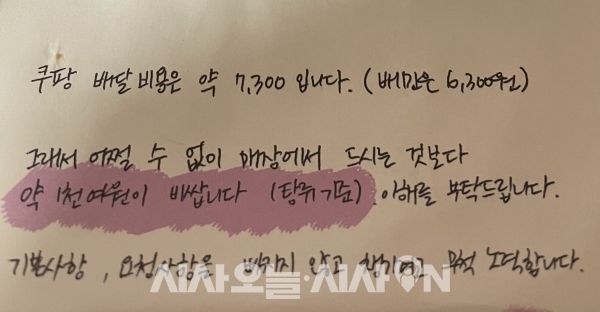 쿠팡 배달비용은 약 7,300입니다. (배민은 6,300원)
그래서 어쩔 수 없이 매장에서 드시는 것보다
약 1천여원이 비쌉니다 (탕류기준). 이해를 부탁드립니다.
기본사항, 요청사항을 빠지지 않고 챙기려고 무척 노력합니다.
시사오늘·시사ON